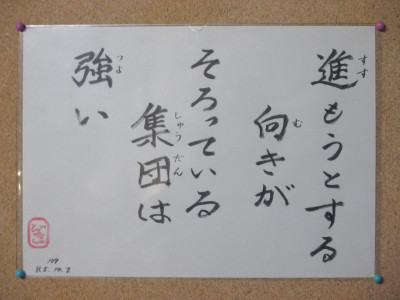 進もうとする
向きが
そろっている
集団は
強い
すす
む
しゅうだん
つよ
109
R5.10.2